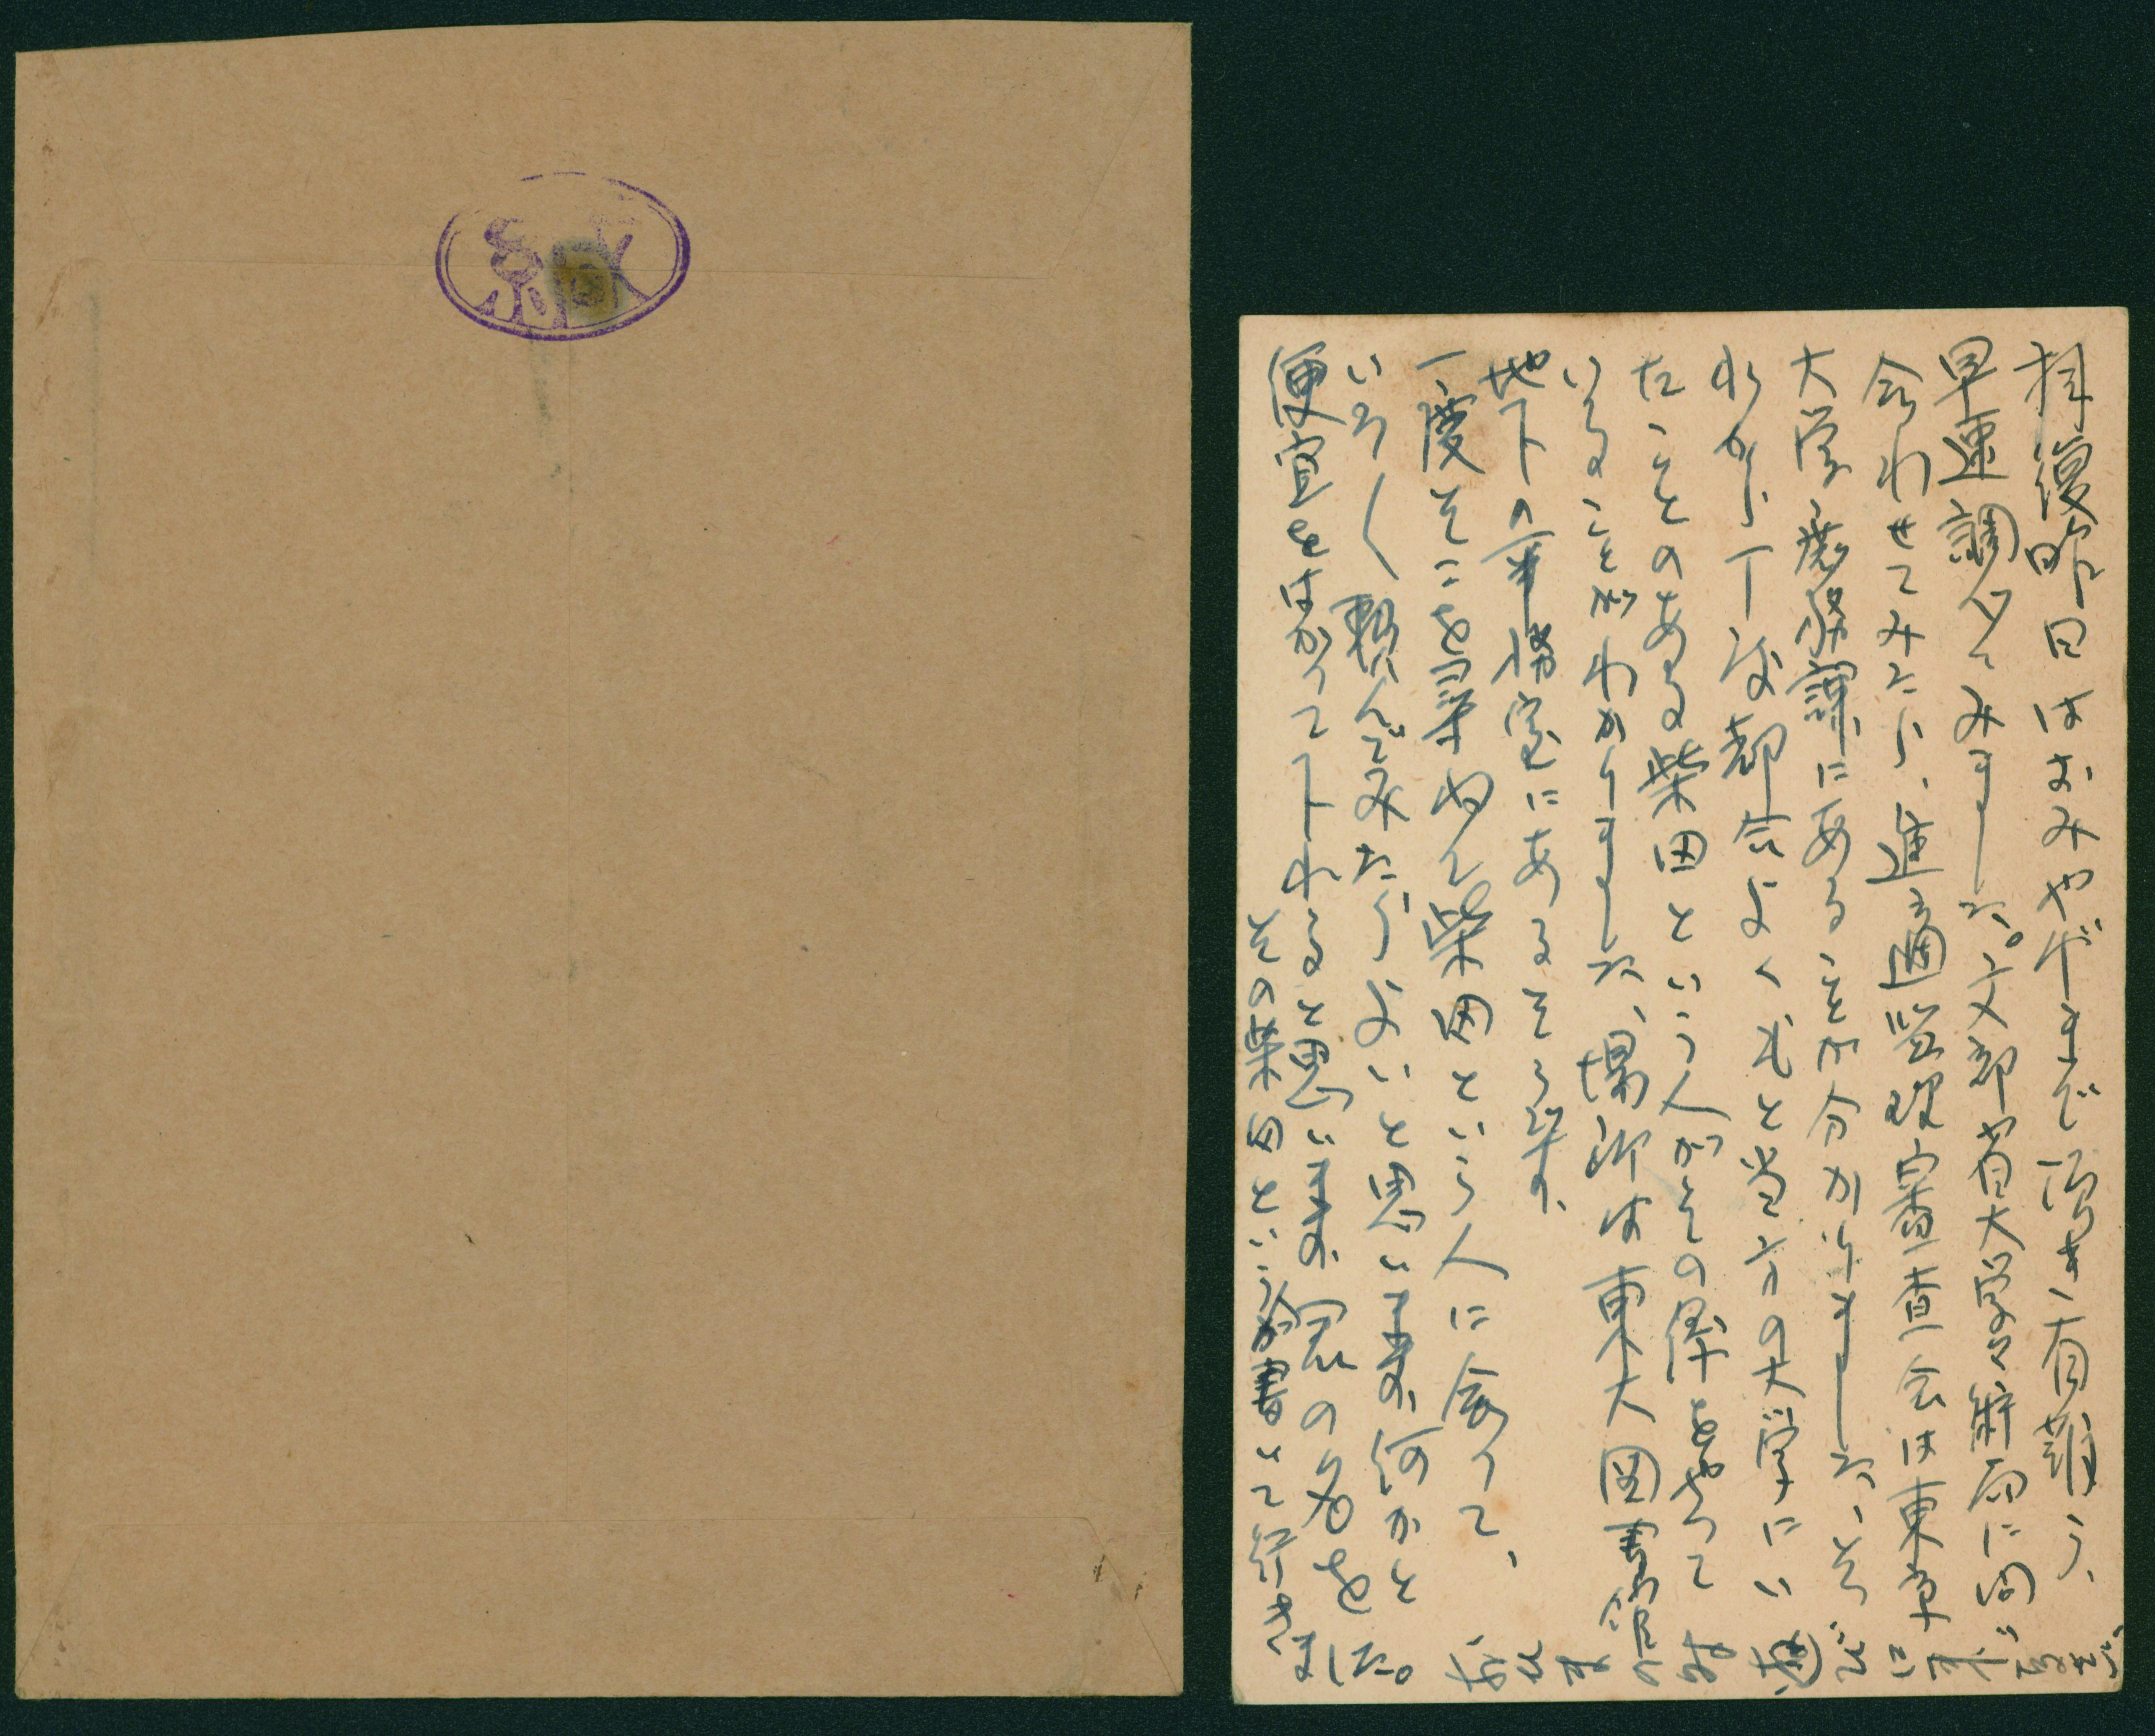 拝復昨日はおみやげまで頂き有難う、
早速調べてみました。文部省大学学術局に問
合わせてみたら、進適管理審査会は東京
大学教務課にあることが分かりました、そ
れから丁度都合よくもと当方の大学にい
たことのある柴田という人がその係をやって
いることがわかりました、場所は東大図書館の
地下の事務室にあるそうです、
一度そこを尋ねて柴田という人に会って、
いろ〳〵頼んでみたらよいと思います、何かと
便宜をはかって下れると思います、君の名を
その柴田という人が書いて行きました。